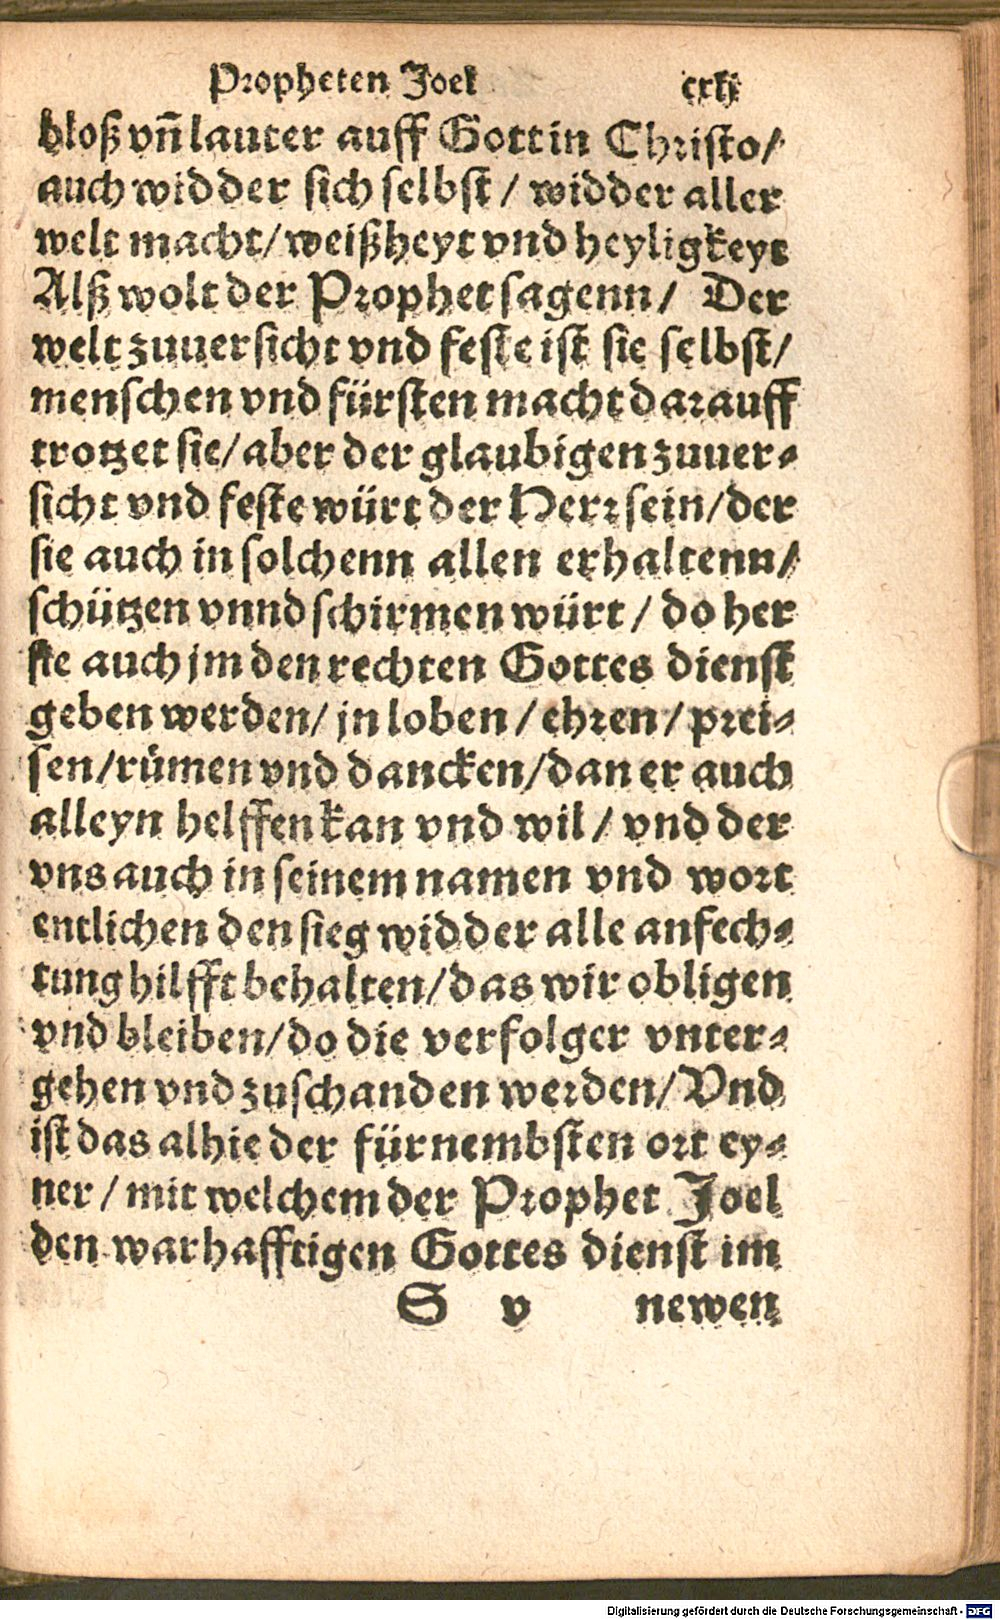 Propheten Joel cxlj
bloß vñ lauter auff Gott in Christo/
auch widder sich selbst / widder aller
welt macht/ weißheyt vnd heyligkeyt
Alß wolt der Prophet sagenn / Der
welt zuuersicht vnd feste ist sie selbst/
menschen vnd fürsten macht darauff
trotzet sie/ aber der glaubigen zuuer-
sicht vnd feste würt der Herr sein/ der
sie auch in solchenn allen erhaltenn/
schützen vnnd schirmen würt / do her
sie auch jm den rechten Gottes dienst
geben werden/ jn loben / ehren / prei-
sen/ rümen vnd dancken/ dan er auch
alleyn helffen kan vnd wil / vnd der
vns auch in seinem namen vnd wort
entlichen den sieg widder alle anfech-
tung hilfft behalten/ das wir obligen
vnd bleiben/ do die verfolger vnter-
gehen vnd zuschanden werden/ Vnd
ist das alhie der fürnembsten ort ey-
ner / mit welchem der Prophet Joel
den warhafftigen Gottes dienst im
S v newen
Digitalisierung gefördert durch die Deutsche Forschungsgemeinschaft - DFG